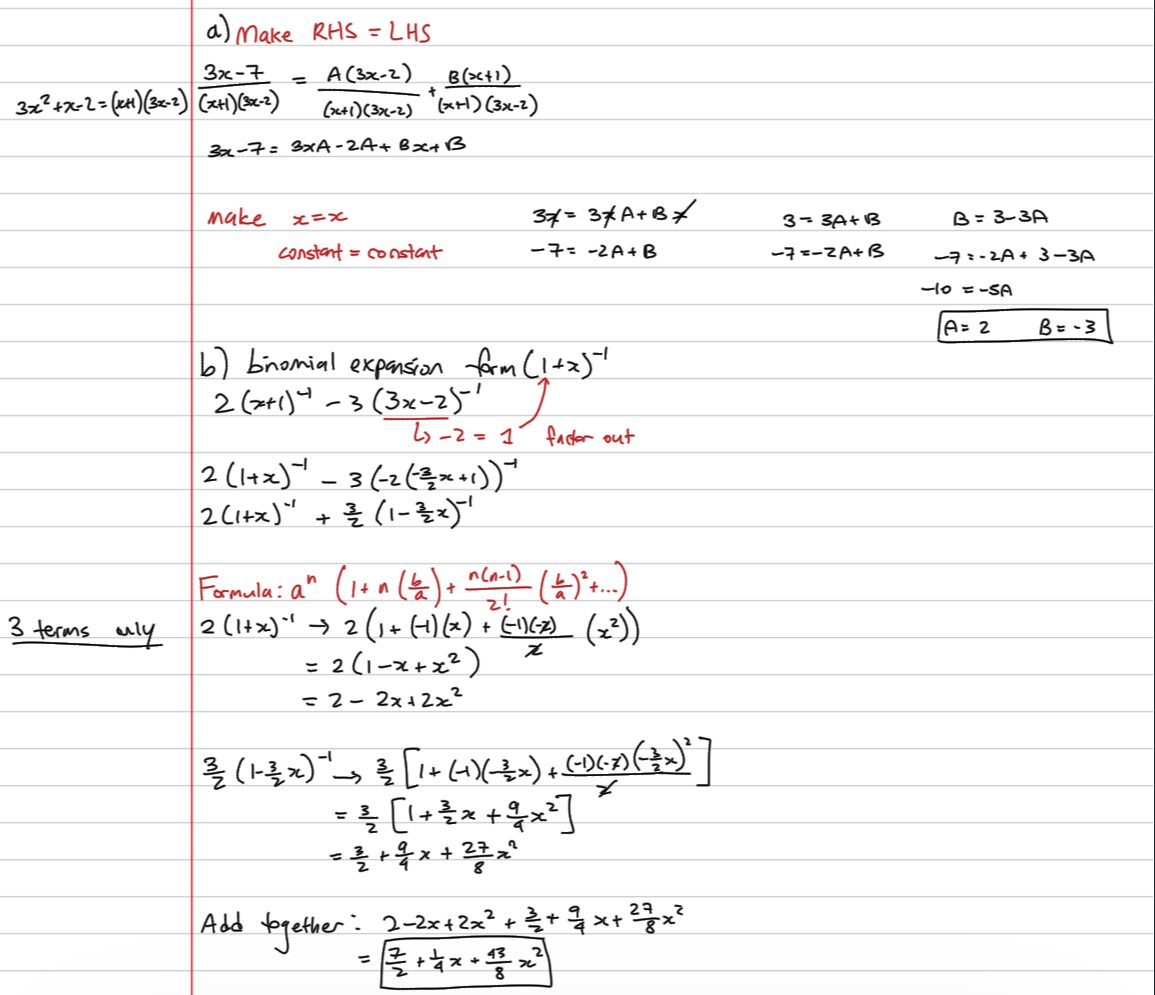 a) Make RHS = LHS
3x²+x-2=(x+1)(3x-2)
(3x-7)/((x+1)(3x-2)) = A(3x-2)/((x+1)(3x-2)) + B(x+1)/((x+1)(3x-2))
3x-7 = 3xA-2A+Bx+B
make x=x
3x = 3xA+Bx
3=3A+B
B = 3-3A
constant = constant
-7 = -2A+B
-7=-2A+B
-7=-2A+3-3A
-10 = -5A
A=2 B=-3
b) binomial expansion form (1+x)⁻¹
2(x+1)⁻¹ - 3(3x-2)⁻¹
↳ -2 = 1 factor out
2(1+x)⁻¹ - 3(-2(-3/2x+1))⁻¹
2(1+x)⁻¹ + 3/2(1-3/2x)⁻¹
Formula: aⁿ(1+n(b/a)+n(n-1)/2!(b/a)²+...)
3 terms only
2(1+x)⁻¹ → 2(1+(-1)(x)+(-1)(-2)/2(x²))
= 2(1-x+x²)
= 2-2x+2x²
3/2(1-3/2x)⁻¹ → 3/2[1+(-1)(-3/2x)+(-1)(-2)(-3/2x)²/2]
= 3/2[1+3/2x+9/4x²]
= 3/2+9/4x+27/8x²
Add together: 2-2x+2x²+3/2+9/4x+27/8x²
= 7/2+1/4x+43/8x²